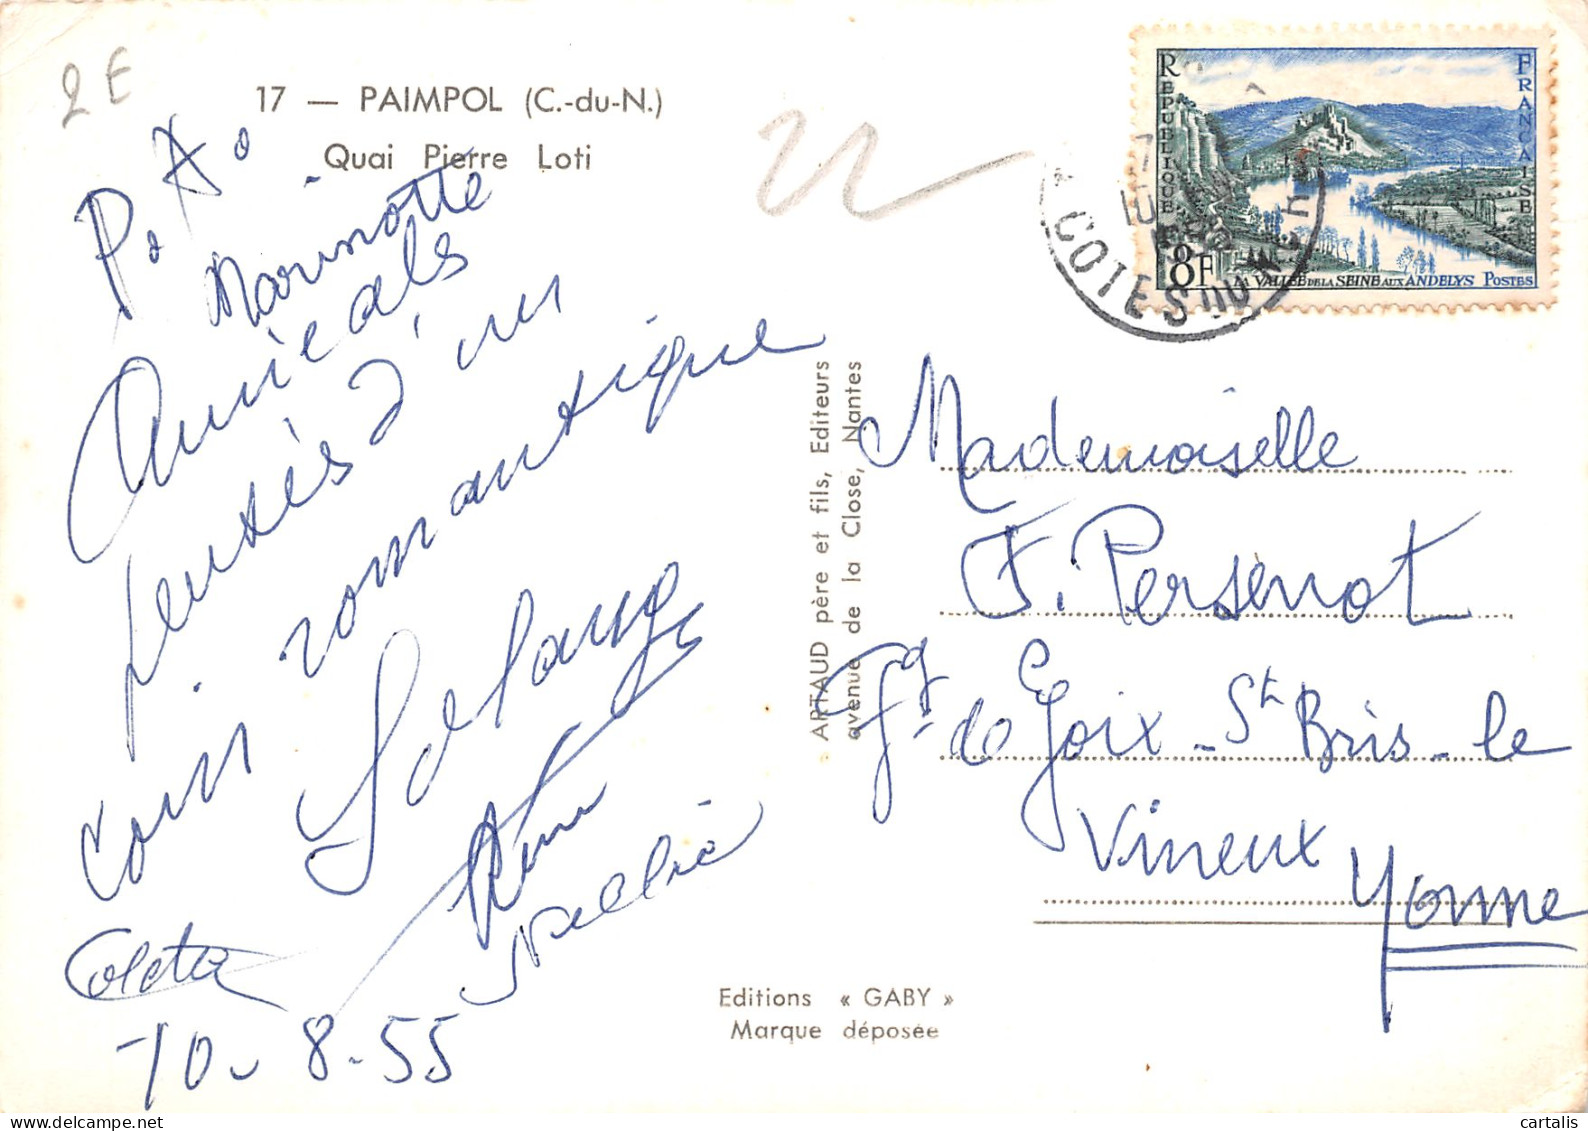 2E
17 — PAIMPOL (C.-du-N.)
Quai Pierre Loti
P. A.
Marinotte
Amicals
pensés d'un
coin romantique
Solange
Nellie
Coleta
10-8-55
ARTAUD père et fils, Editeurs
avenue de la Close, Nantes
Editions « GABY »
Marque déposée
REPUBLIQUE
FRANÇAISE
8F
VALLÉE DE LA SEINE AUX ANDELYS POSTES
COTES DU N
Mademoiselle
F. Persenot
Fg de Goix - St Bris - le
Vineux
Yonne
cartalis
delcampe.net